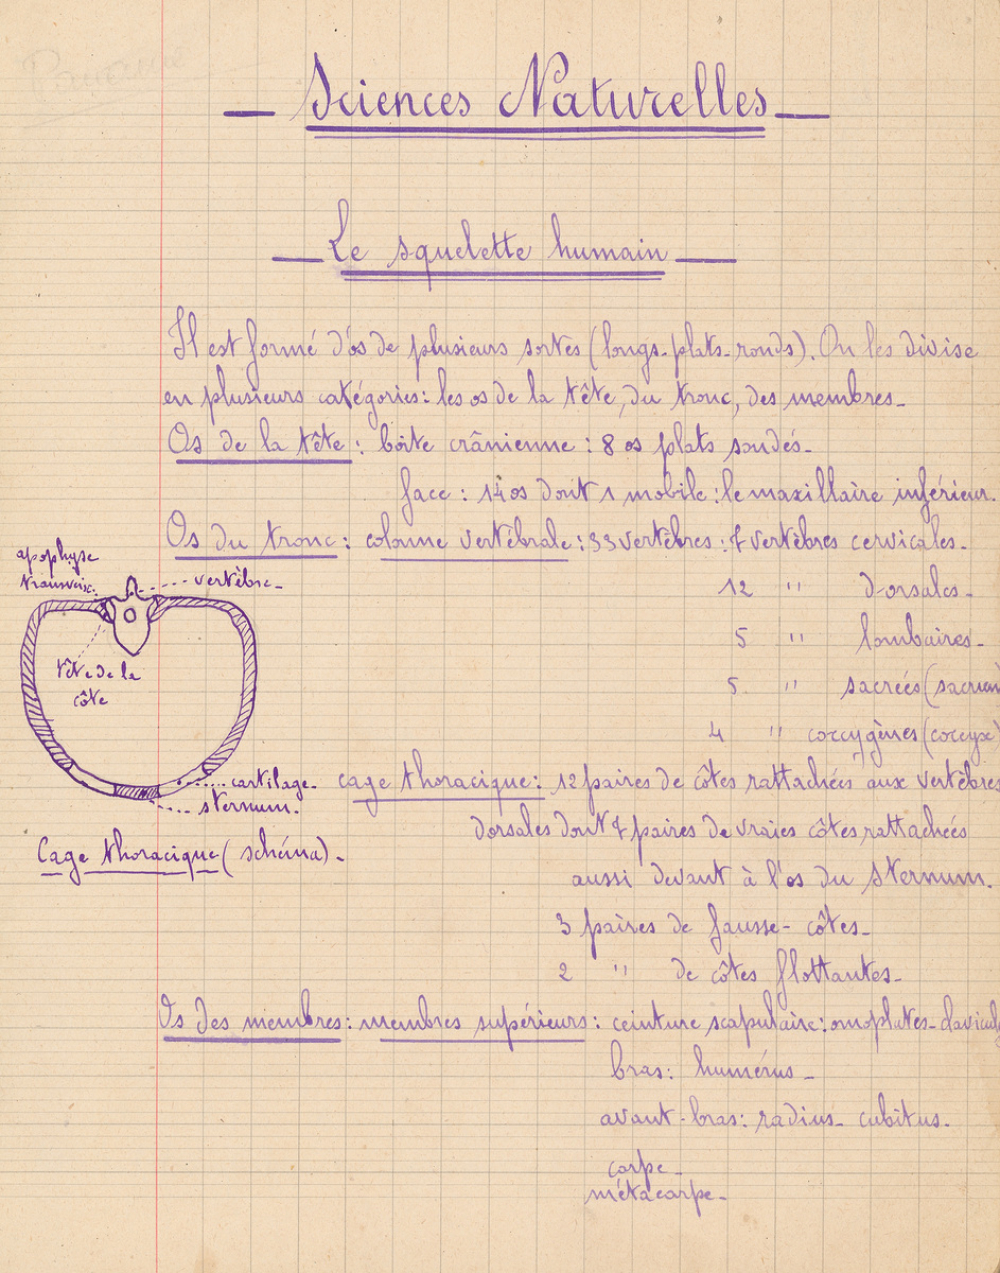 Sciences Naturelles
Le squelette humain
Il est formé d'os de plusieurs sortes (longs-plats-ronds). On les divise
en plusieurs catégories: les os de la tête, du tronc, des membres-
Os de la tête: boîte crânienne: 8 os plats soudés-
face: 14 os dont 1 mobile: le maxillaire inférieur.
Os du tronc: colonne vertébrale: 33 vertèbres: 7 vertèbres cervicales-
12 " dorsales-
5 " lombaires-
5 " sacrées (sacrum
4 " coccygènes (coccyx)
apophyse
transverse.
vertèbre-
tête de la
côte
cartilage-
sternum.
Cage thoracique (schéma)-
cage thoracique: 12 paires de côtes rattachées aux vertèbres
dorsales dont 7 paires de vraies côtes rattachées
aussi devant à l'os du sternum.
3 paires de fausse-côtes-
2 " de côtes flottantes-
Os des membres: membres supérieurs: ceinture scapulaire: omoplates-clavicul
bras: humérus-
avant-bras: radius-cubitus.
carpe-
métacarpe-